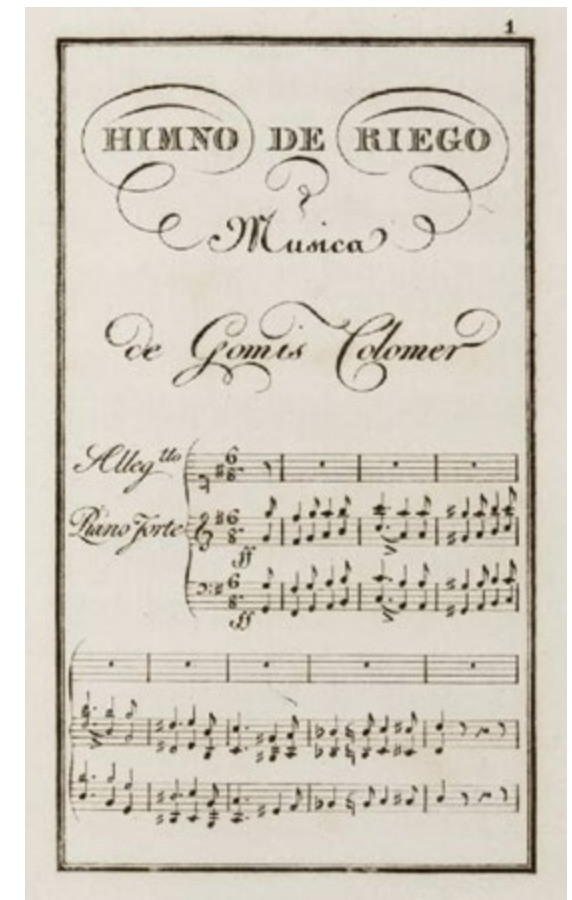 1
HIMNO DE RIEGO
Musica
de Gomis Colomer
Alleg.tto 6/8
Piano Forte 6/8
ff
6/8
ff